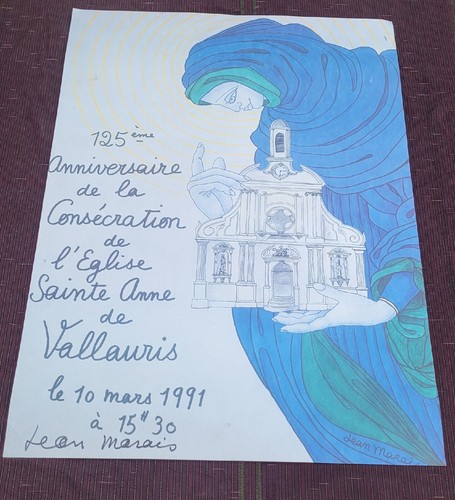 125ème
Anniversaire
de la
Consécration
de
l'Eglise
Sainte Anne
de
Vallauris
le 10 mars 1991
à 15H30
Jean Marais
Jean Marais